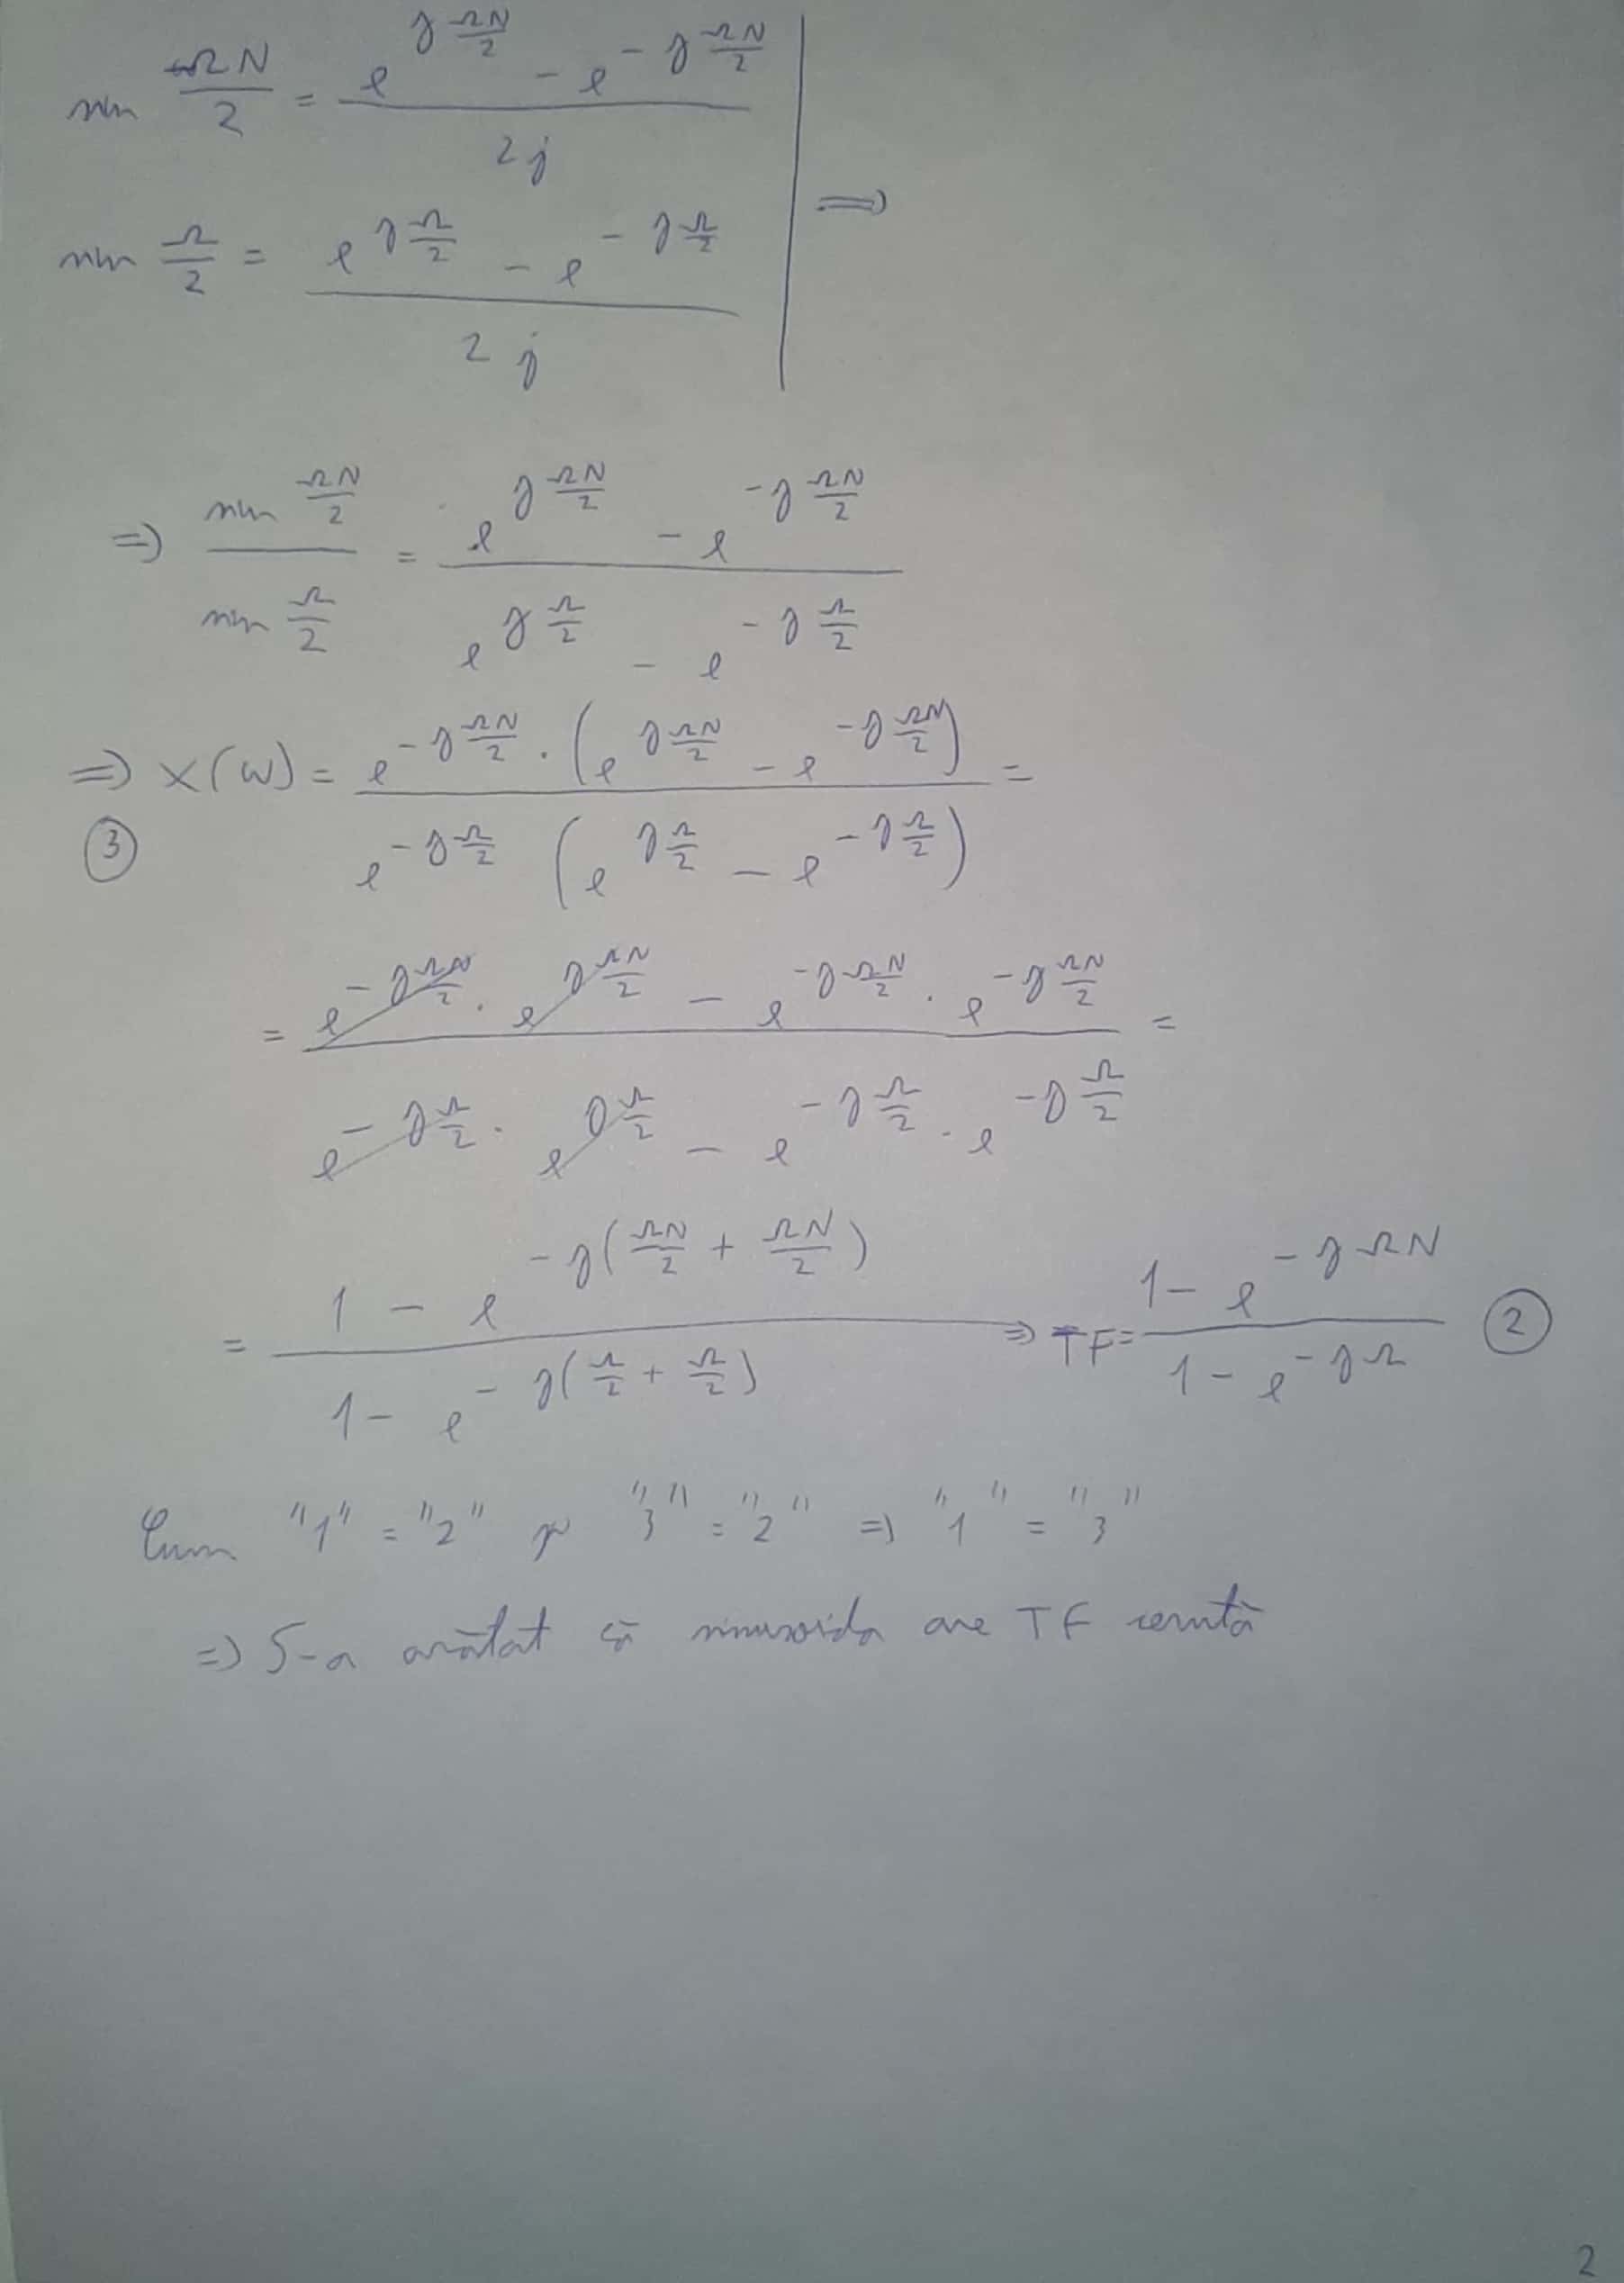 sin ΩN/2 = (e^{jΩN/2} - e^{-jΩN/2}) / 2j
sin Ω/2 = (e^{jΩ/2} - e^{-jΩ/2}) / 2j ⟹
⇒ (sin ΩN/2) / (sin Ω/2) = (e^{jΩN/2} - e^{-jΩN/2}) / (e^{jΩ/2} - e^{-jΩ/2})
⇒ X(ω) = e^{-jΩN/2} · (e^{jΩN/2} - e^{-jΩN/2}) / e^{-jΩ/2} (e^{jΩ/2} - e^{-jΩ/2}) =
③
= (e^{-jΩN/2} · e^{jΩN/2} - e^{-jΩN/2} · e^{-jΩN/2}) / (e^{-jΩ/2} · e^{jΩ/2} - e^{-jΩ/2} · e^{-jΩ/2}) =
= (1 - e^{-j(ΩN/2 + ΩN/2)}) / (1 - e^{-j(Ω/2 + Ω/2)}) ⇒ TF = (1 - e^{-jΩN}) / (1 - e^{-jΩ}) ②
Cum "1" = "2" și "3" = "2" ⇒ "1" = "3"
⇒ S-a arătat că sinusoida are TF cerută
2